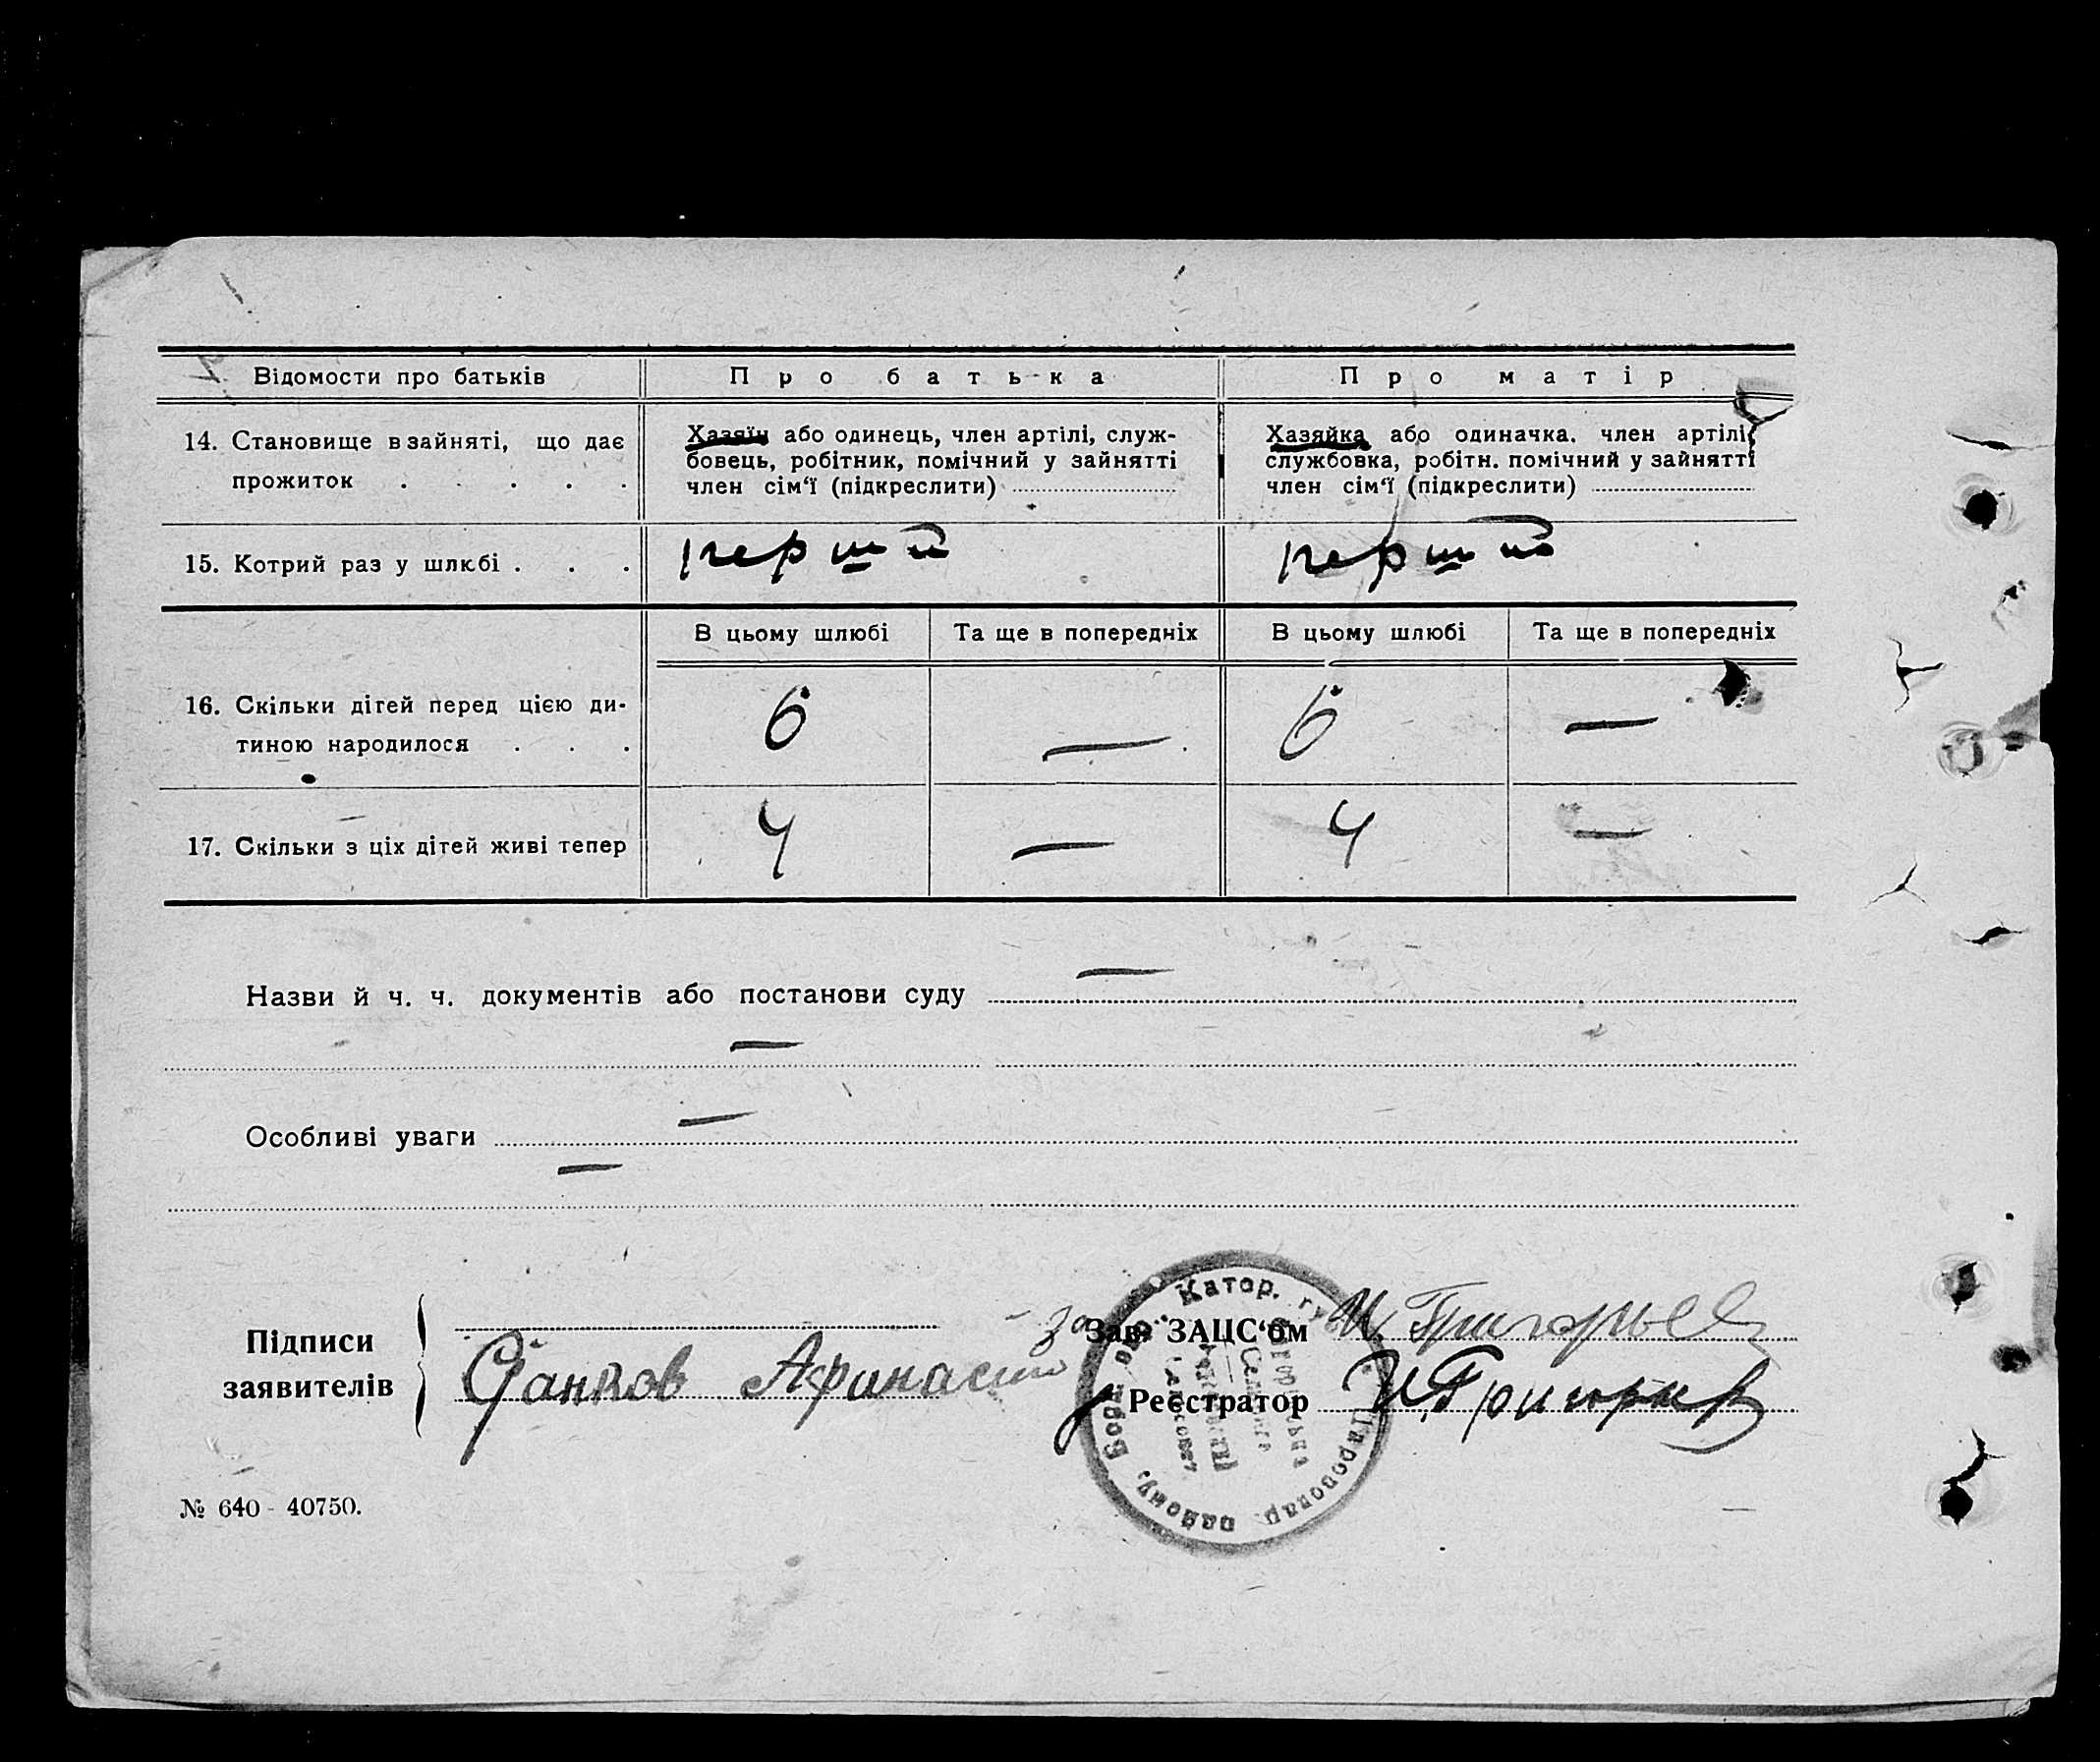 Відомости про батьків
Про батька
Про матір
14. Становище в зайняті, що дає
прожиток . . . . .
Хазяїн або одинець, член артілі, служ-
бовець, робітник, помічний у зайнятті
член сім‘ї (підкреслити)
Хазяйка або одиначка. член артілі,
службовка, робітн. помічний у зайнятті
член сім‘ї (підкреслити)
15. Котрий раз у шлюбі . . .
перший
перший
В цьому шлюбі
Та ще в попередніх
В цьому шлюбі
Та ще в попередніх
16. Скільки дітей перед цією ди-
тиною народилося . . .
6
—
6
—
17. Скільки з ціх дітей живі тепер
4
—
4
—
Назви й ч. ч. документів або постанови суду —
—
Особливі уваги —
—
Підписи
заявителів
Афанасий
За Зав. ЗАЦС‘ом И. Григорьев
Реєстратор И. Григорьев
Катор. району,
№ 640 - 40750.